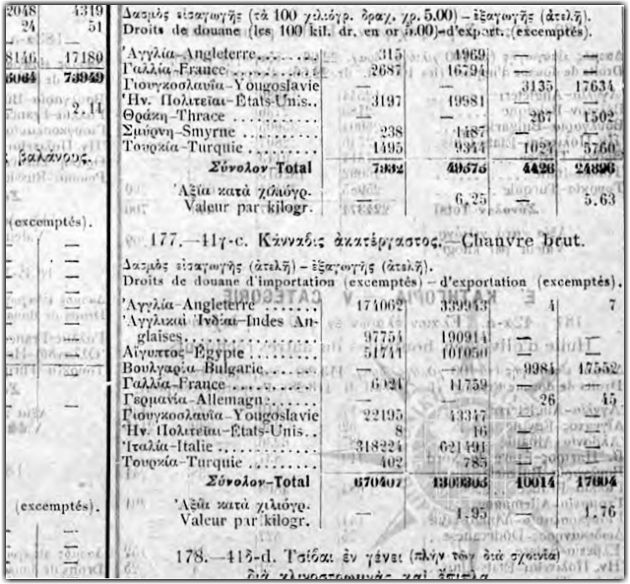 2048 4319
24 51
8146 17180
73949
2.14
βαλάνους.
(excemptés).
(excemptés).
Δασμὸς εἰσαγωγῆς (τὰ 100 χιλιόγρ. δραχ. χρ. 5.00) – ἐξαγωγῆς (ἀτελῆ).
Droits de douane (les 100 kil. dr. en or 5.00)–d'export. (excemptés).
Ἀγγλία–Angleterre 315 1969 — —
Γαλλία–France 2687 16794 — —
Γιουγκοσλαυΐα–Yougoslavie — — 3135 17634
Ἡν. Πολιτεῖαι–États-Unis.. 3197 19981 — —
Θράκη–Thrace — — 267 1502
Σμύρνη–Smyrne 238 1487 — —
Τουρκία–Turquie 1495 9344 1024 5760
Σύνολον–Total 7932 49575 4426 24896
Ἀξία κατὰ χιλιόγρ.
Valeur par kilogr. — 6.25 — 5.63
177.—41γ-c. Κάνναβις ἀκατέργαστος.—Chanvre brut.
Δασμὸς εἰσαγωγῆς (ἀτελῆ) – ἐξαγωγῆς (ἀτελῆ).
Droits de douane d'importation (excemptés) – d'exportation (excemptés).
Ἀγγλία–Angleterre 174062 339943 4 7
Ἀγγλικαὶ Ἰνδίαι–Indes An-
glaises 97754 190914 — —
Αἴγυπτος–Égypte 51741 101050 — —
Βουλγαρία–Bulgarie — — 9984 17552
Γαλλία–France 6021 11759 — —
Γερμανία–Allemagne — — 26 45
Γιουγκοσλαυΐα–Yougoslavie 22195 43347 — —
Ἡν. Πολιτεῖαι–États-Unis... 8 16 — —
Ἰταλία–Italie 318224 621491 — —
Τουρκία–Turquie 402 785 — —
Σύνολον–Total 670407 1309305 10014 17604
Ἀξία κατὰ χιλιόγρ.
Valeur par kilogr. — 1.95 — 1.76
178.—41δ-d. Τσίβαι ἐν γένει (πλὴν τῶν διὰ σχοινία)
διὰ κλινοστρωμνὰς καὶ ἔπιπλα